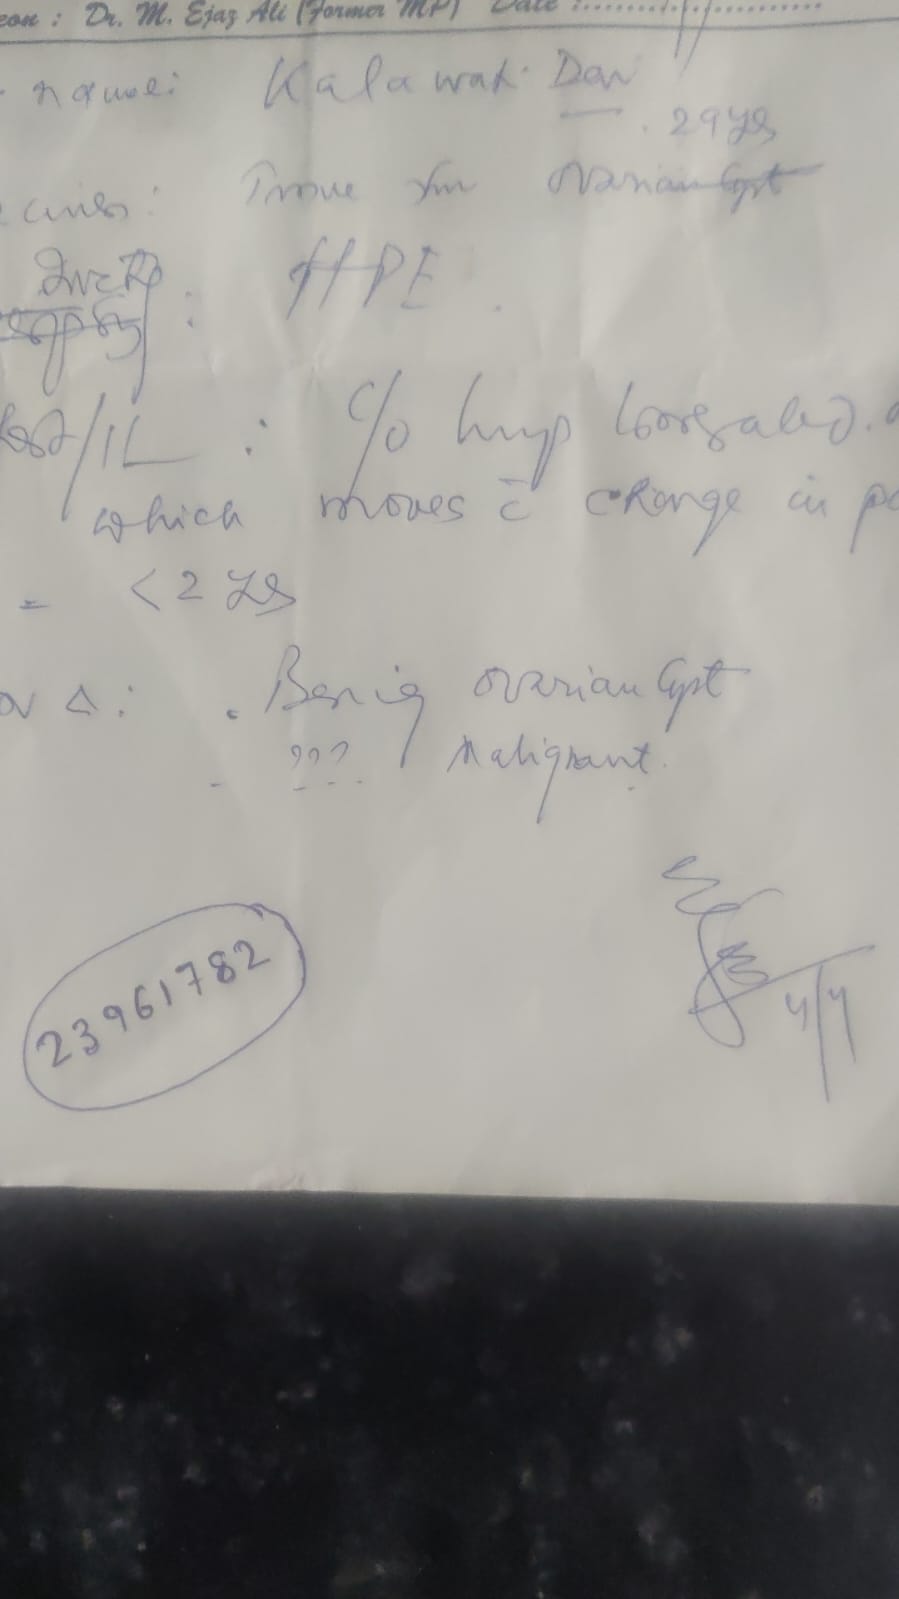 eon : Dr. M. Ejaz Ali (Former MP) Date :
name: Kalawati Devi
29 ys
Tissue fm ovarian Cyst
HPE
c/o lump
which moves c̄ change in po
= < 2 ys
ov Δ: Benig ovarian Cyst
??? Malignant.
23961782
4/4